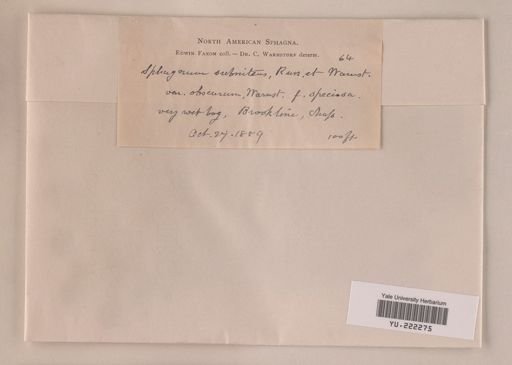 NORTH AMERICAN SPHAGNA.
EDWIN FAXON coll. — DR. C. WARNSTORF determ.
64
Sphagnum subnitens, Russ. et Warnst.
var. obscurum, Warnst. f. speciosa.
very wet bog, Brookline, Mass.
Oct. 27. 1889 100 ft.
Yale University Herbarium
YU-222275